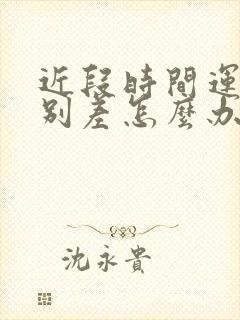 近段時間運
别差怎麼办
沈永貴